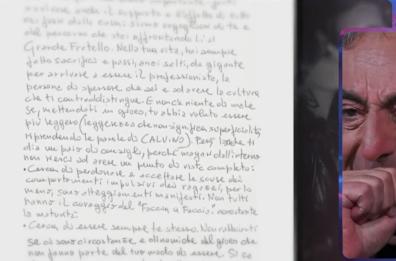 anche il supporto e l'affetto di tutto
sono orgogliosi di te e
del percorso che stai affrontando lì al
Grande Fratello. Nella tua vita, hai sempre
fatto sacrifici e passi, anzi salti, da gigante
per arrivare a essere il professionista, la
persona di spessore che sei e ad avere la cultura
che ti contraddistingue. E non c'è niente di male
se, mettendoti in gioco, tu abbia voluto essere
più leggero (leggerezza che non significa superficialità
riprendendo le parole di CALVINO). Però
dia un paio di consigli, perché magari dall'interno
non riesci ad avere un punto di vista completo:
• Cerca di perdonare e accettare le scuse dei
comportamenti impulsivi dei ragazzi, per lo
meno, suoi atteggiamenti manifesti. Non tutti
hanno il coraggio del "Faccia a Faccia" nonostante
la maturità.
• Cerca di essere sempre te stesso. Non
se ci sono circostanze o dinamiche del gioco che
non fanno parte del tuo modo di essere. Si